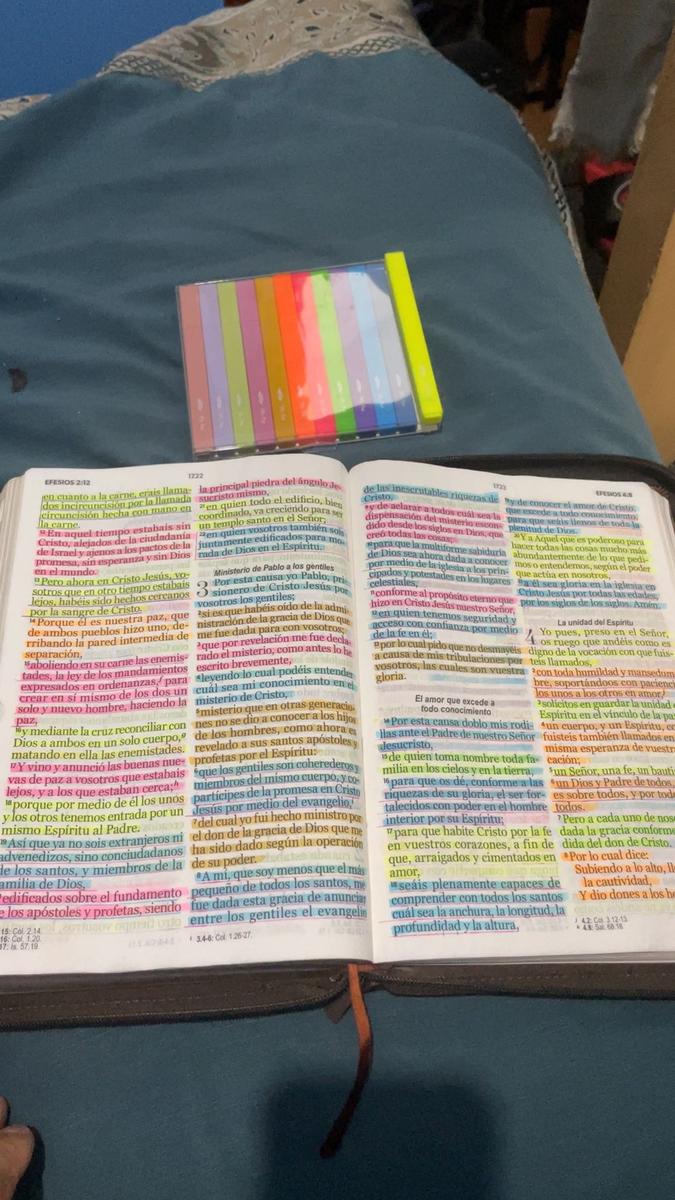 EFESIOS 2:12
1722
en cuanto a la carne, erais llama-
dos incircuncisión por la llamada
circuncisión hecha con mano en
la carne.
12En aquel tiempo estabais sin
Cristo, alejados de la ciudadanía
de Israel y ajenos a los pactos de la
promesa, sin esperanza y sin Dios
en el mundo.
13Pero ahora en Cristo Jesús, vo-
sotros que en otro tiempo estabais
lejos, habéis sido hechos cercanos
por la sangre de Cristo.
14Porque él es nuestra paz, que
de ambos pueblos hizo uno, de-
rribando la pared intermedia de
separación,
15aboliendo en su carne las enemis-
tades, la ley de los mandamientos
expresados en ordenanzas, para
crear en sí mismo de los dos un
solo y nuevo hombre, haciendo la
paz,
16y mediante la cruz reconciliar con
Dios a ambos en un solo cuerpo,
matando en ella las enemistades.
17Y vino y anunció las buenas nue-
vas de paz a vosotros que estabais
lejos, y a los que estaban cerca;
18porque por medio de él los unos
y los otros tenemos entrada por un
mismo Espíritu al Padre.
19Así que ya no sois extranjeros ni
advenedizos, sino conciudadanos
de los santos, y miembros de la
familia de Dios,
edificados sobre el fundamento
e los apóstoles y profetas, siendo
15: Col. 2.14.
16: Col. 1.20.
17: Is. 57.19.
la principal piedra del ángulo Je-
sucristo mismo,
21en quien todo el edificio, bien
coordinado, va creciendo para ser
un templo santo en el Señor;
22en quien vosotros también sois
juntamente edificados para mo-
rada de Dios en el Espíritu.
Ministerio de Pablo a los gentiles
3 Por esta causa yo Pablo, pri-
sionero de Cristo Jesús por
vosotros los gentiles;
2si es que habéis oído de la admi-
nistración de la gracia de Dios que
me fue dada para con vosotros;
3que por revelación me fue decla-
rado el misterio, como antes lo he
escrito brevemente,
4leyendo lo cual podéis entender
cuál sea mi conocimiento en el
misterio de Cristo,
5misterio que en otras generacio-
nes no se dio a conocer a los hijos
de los hombres, como ahora es
revelado a sus santos apóstoles y
profetas por el Espíritu:
6que los gentiles son coherederos y
miembros del mismo cuerpo, y co-
partícipes de la promesa en Cristo
Jesús por medio del evangelio,
7del cual yo fui hecho ministro por
el don de la gracia de Dios que me
ha sido dado según la operación
de su poder.
8A mí, que soy menos que el más
pequeño de todos los santos, me
fue dada esta gracia de anunciar
entre los gentiles el evangelio
3.4-6: Col. 1.26-27.
1723
EFESIOS 4:8
de las inescrutables riquezas de
Cristo,
9y de aclarar a todos cuál sea la
dispensación del misterio escon-
dido desde los siglos en Dios, que
creó todas las cosas;
10para que la multiforme sabiduría
de Dios sea ahora dada a conocer
por medio de la iglesia a los prin-
cipados y potestades en los lugares
celestiales,
11conforme al propósito eterno que
hizo en Cristo Jesús nuestro Señor,
12en quien tenemos seguridad y
acceso con confianza por medio
de la fe en él;
13por lo cual pido que no desmayéis
a causa de mis tribulaciones por
vosotros, las cuales son vuestra
gloria.
El amor que excede a
todo conocimiento
14Por esta causa doblo mis rodi-
llas ante el Padre de nuestro Señor
Jesucristo,
15de quien toma nombre toda fa-
milia en los cielos y en la tierra,
16para que os dé, conforme a las
riquezas de su gloria, el ser for-
talecidos con poder en el hombre
interior por su Espíritu;
17para que habite Cristo por la fe
en vuestros corazones, a fin de
que, arraigados y cimentados en
amor,
18seáis plenamente capaces de
comprender con todos los santos
cuál sea la anchura, la longitud, la
profundidad y la altura,
19y de conocer el amor de Cristo,
que excede a todo conocimiento,
para que seáis llenos de toda la
plenitud de Dios.
20Y a Aquel que es poderoso para
hacer todas las cosas mucho más
abundantemente de lo que pedi-
mos o entendemos, según el poder
que actúa en nosotros,
21a él sea gloria en la iglesia en
Cristo Jesús por todas las edades,
por los siglos de los siglos. Amén.
La unidad del Espíritu
4 Yo pues, preso en el Señor,
os ruego que andéis como es
digno de la vocación con que fuis-
teis llamados,
2con toda humildad y mansedum
bre, soportándoos con pacien
los unos a los otros en amor,
3solícitos en guardar la unidad
Espíritu en el vínculo de la paz
4un cuerpo, y un Espíritu, co
fuisteis también llamados en
misma esperanza de vuestr
cación;
5un Señor, una fe, un bauti
6un Dios y Padre de todos
es sobre todos, y por tod
todos.
7Pero a cada uno de nos
dada la gracia conform
dida del don de Cristo.
8Por lo cual dice:
Subiendo a lo alto, ll
la cautividad,
Y dio dones a los
4.2: Col. 3.12-13.
4.8: Sal. 68.18